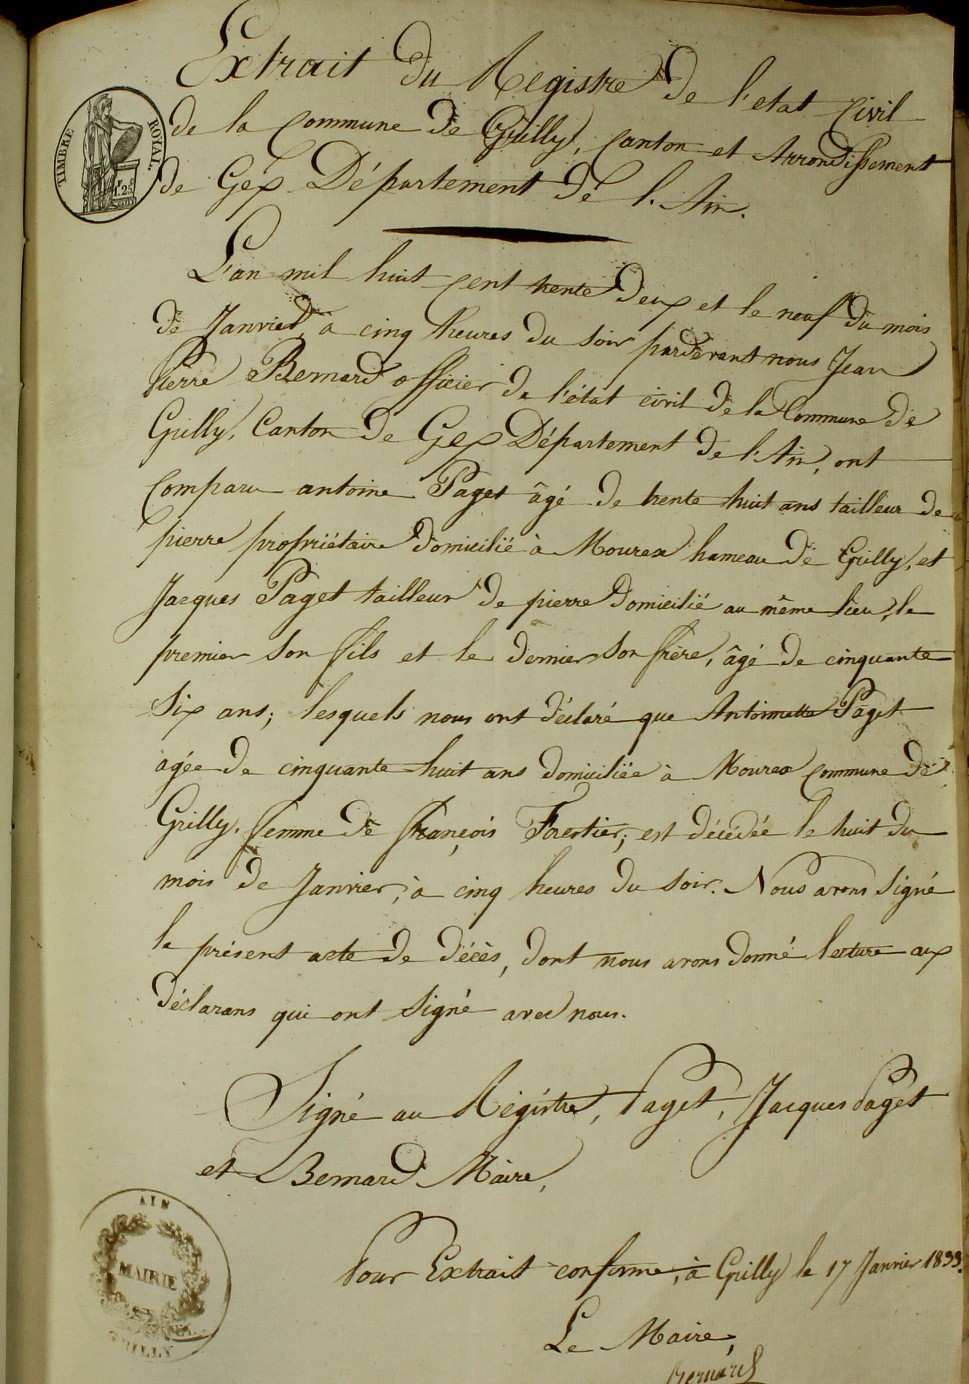 Extrait du Registre de l'etat civil
de la Commune de Grilly, Canton et Arrondissement
de Gex Département de l'Ain.
TIMBRE ROYAL
L'an mil huit cent trente deux et le neuf du mois
de Janvier, à cinq heures du soir pardevant nous Jean
Pierre Bernard officier de l'état civil de la Commune de
Grilly, Canton de Gex Département de l'Ain, ont
Comparu antoine Paget âgé de trente huit ans tailleur de
pierre propriétaire domicilié à Mourex hameau de Grilly, et
Jacques Paget tailleur de pierre domicilié au même lieu, le
premier son fils et le dernier son frère, âgé de cinquante
Six ans; lesquels nous ont déclaré que Antoinette Paget
agée de cinquante huit ans domiciliée à Mourex commune de
Grilly, femme de françois Forestier; est décédée le huit du
mois de Janvier, à cinq heures du soir. Nous avons Signé
le présent acte de décès, dont nous avons donné lecture aux
déclarans qui ont Signé avec nous.
Signé au Régistre, Paget, Jacques Paget
et Bernard Maire,
AIN
MAIRIE
GRILLY
Pour Extrait conforme, à Grilly le 17 Janvier 1833.
Le Maire,
Bernard